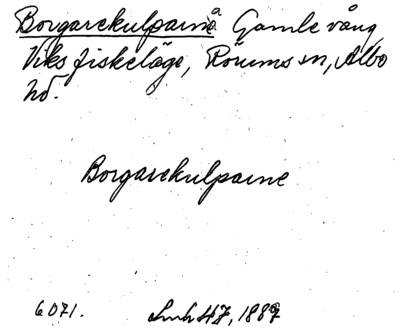 Borgarekulparne å Gamle vång
Viks fiskeläge, Rörums sn, Albo
hd.
Borgarekulparne
6071. Lmh HJ, 1887